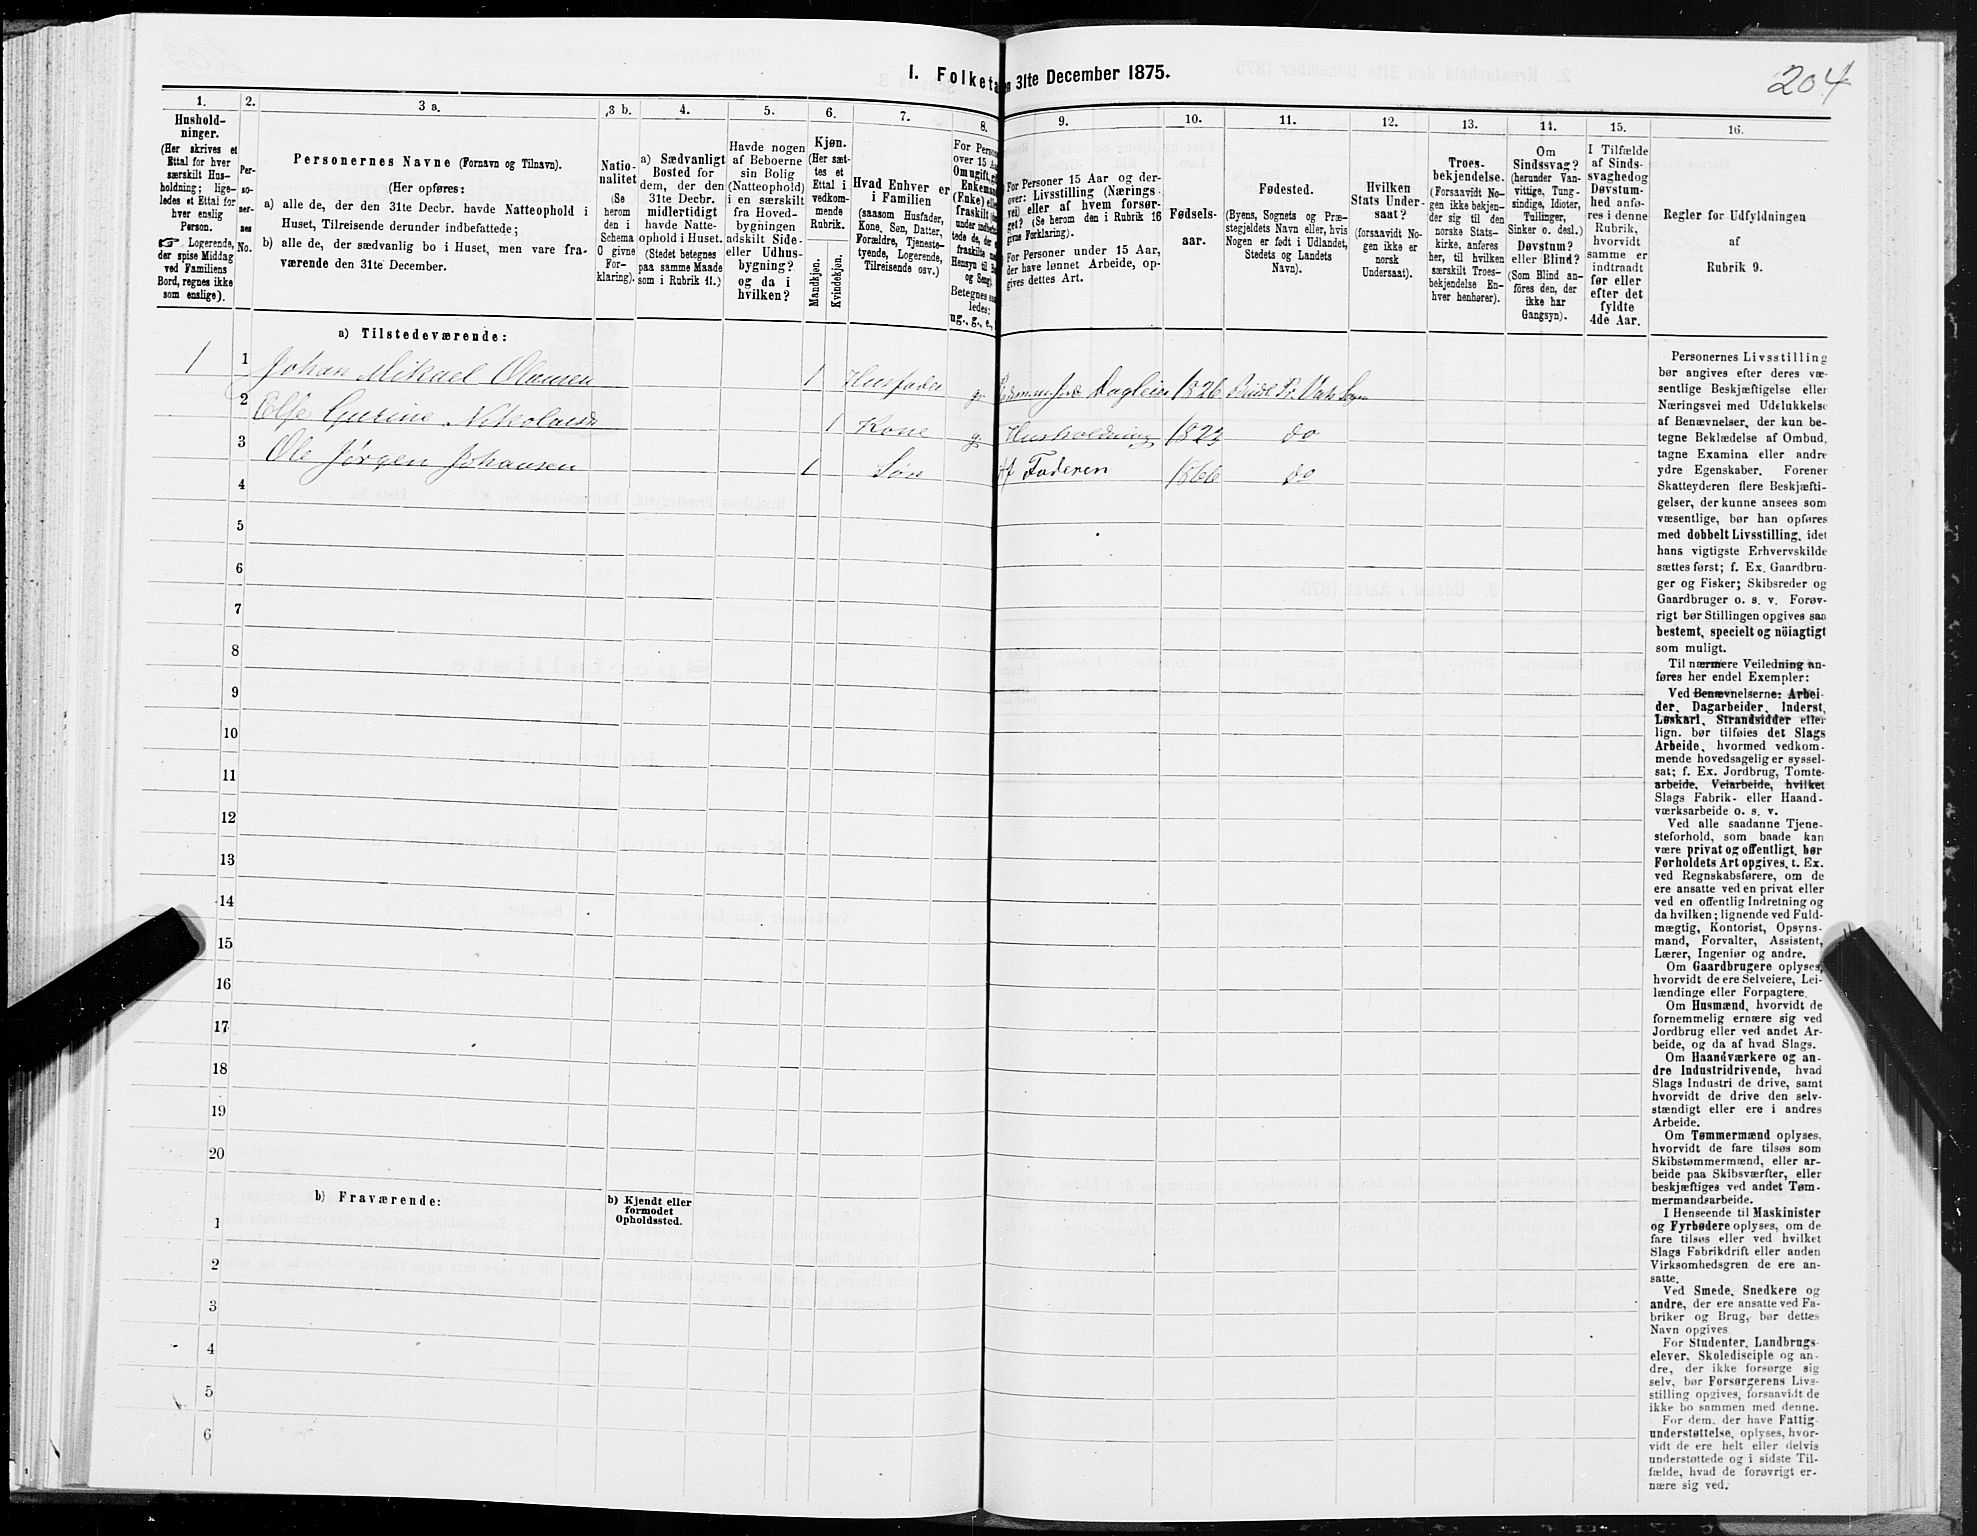 204
1. Folketa
n 31te December 1875.
1.
Hushold-
ninger.
(Her skrives et
Ettal for hver
særskilt Hus-
holdning; lige-
ledes et Ettal for
hver enslig
Person.
☞ Logerende,
der spise Middag
ved Familiens
Bord, regnes ikke
som enslige).
2.
Per-
so-
ner-
nes
No.
3 a.
Personernes Navne (Fornavn og Tilnavn).
(Her opføres:
a) alle de, der den 31te Decbr. havde Natteophold i
Huset, Tilreisende derunder indbefattede;
b) alle de, der sædvanlig bo i Huset, men vare fra-
værende den 31te December.
3 b.
Natio-
nalitet
(Se
herom
den i
Schema
0 givne
For-
klaring).
4.
a) Sædvanligt
Bosted for
dem, der den
31te Decbr.
midlertidigt
havde Natte-
ophold i Huset.
(Stedet betegnes
paa samme Maade
som i Rubrik 11.)
5.
Havde nogen
af Beboerne
sin Bolig
(Natteophold)
i en særskilt
fra Hoved-
bygningen
adskilt Side-
eller Udhus-
bygning?
og da i
hvilken?
6.
Kjøn.
(Her sæt-
tes et
Ettal i
vedkom-
mende
Rubrik.
Mandkjøn.
Kvindekjøn.
7.
Hvad Enhver er
i Familien
(saasom Husfader,
Kone, Søn, Datter,
Forældre, Tjeneste-
tyende, Logerende,
Tilreisende osv.)
8.
For Perso
over 15 Aa
Om ugift, gi
Enkema
(Enke) elle
fraskilt
under indbe
tede de, der
fraskilte
Hensyn til B
og Seng).
Betegnes saa
ledes:
ug., g., e.,
9.
For Personer 15 Aar og der-
over: Livsstilling (Nærings-
vei) eller af hvem forsør-
get? (Se herom den i Rubrik 16
givne Forklaring).
For Personer under 15 Aar,
der have lønnet Arbeide, op-
gives dettes Art.
10.
Fødsels-
aar.
11.
Fødested.
(Byens, Sognets og Præ-
stegjeldets Navn eller, hvis
Nogen er født i Udlandet,
Stedets og Landets
Navn).
12.
Hvilken
Stats Under-
saat?
(forsaavidt No-
gen ikke er
norsk
Undersaat).
13.
Troes-
bekjendelse.
(Forsaavidt No-
gen ikke bekjen-
der sig til den
norske Stats-
kirke, anføres
her, til hvilken
særskilt Troes-
bekjendelse En-
hver henhører).
14.
Om
Sindssvag?
(herunder Van-
vittige, Tung-
sindige, Idioter,
Tullinger,
Sinker o. desl.)
Døvstum?
eller Blind?
(Som Blind an-
føres den, der
ikke har
Gangsyn).
15.
I Tilfælde
af Sinds-
svaghed og
Døvstum-
hed anfø-
res i denne
Rubrik,
hvorvidt
samme er
indtraadt
før eller
efter det
fyldte
4de Aar.
16.
Regler for Udfyldningen
af
Rubrik 9.
a) Tilstedeværende:
1 1 Johan Mikael Olausen 1 Husfader g. Dagleier 1826
2 Else Gurine Nikolausd 1 Kone g. Husholdning 1823 do
3 Ole Jørgen Johansen 1 Søn Af Faderen 1866 do
4
5
6
7
8
9
10
11
12
13
14
15
16
17
18
19
20
b) Fraværende:
b) Kjendt eller
formodet
Opholdssted.
1
2
3
4
5
6
Personernes Livsstilling
bør angives efter deres væ-
sentlige Beskjæftigelse eller
Næringsvei med Udelukkelse
af Benævnelser, der kun be-
tegne Beklædelse af Ombud,
tagne Examina eller andre
ydre Egenskaber. Forener
Skatteyderen flere Beskjæfti-
gelser, der kunne ansees som
væsentlige, bør han opføres
med dobbelt Livsstilling, idet
hans vigtigste Erhvervskilde
sættes først; f. Ex. Gaardbru-
ger og Fisker; Skibsreder og
Gaardbruger o. s. v. Forøv-
rigt bør Stillingen opgives saa
bestemt, specielt og nöiagtigt
som muligt.
Til nærmere Veiledning an-
føres her endel Exempler:
Ved Benævnelserne: Arbei-
der, Dagarbeider, Inderst,
Løskarl, Strandsidder eller
lign. bør tilføies det Slags
Arbeide, hvormed vedkom-
mende hovedsagelig er syssel-
sat; f. Ex. Jordbrug, Tomte-
arbeide, Veiarbeide, hvilket
Slags Fabrik- eller Haand-
værksarbeide o. s. v.
Ved alle saadanne Tjene-
steforhold, som baade kan
være privat og offentligt, bør
Forholdets Art opgives, t. Ex.
ved Regnskabsførere, om de
ere ansatte ved en privat eller
ved en offentlig Indretning og
da hvilken; lignende ved Fuld-
mægtig, Kontorist, Opsyns-
mand, Forvalter, Assistent,
Lærer, Ingeniør og andre.
Om Gaardbrugere oplyses,
hvorvidt de ere Selveiere, Lei-
lændinge eller Forpagtere.
Om Husmænd, hvorvidt de
fornemmelig ernære sig ved
Jordbrug eller ved andet Ar-
beide, og da af hvad Slags.
Om Haandværkere og an-
dre Industridrivende, hvad
Slags Industri de drive, samt
hvorvidt de drive den selv-
stændigt eller ere i andres
Arbeide.
Om Tømmermænd oplyses,
hvorvidt de fare tilsøs som
Skibstømmermænd, eller ar-
beide paa Skibsværfter, eller
beskjæftiges ved andet Tøm-
mermandsarbeide.
I Henseende til Maskinister
og Fyrbødere oplyses, om de
fare tilsøs eller ved hvilket
Slags Fabrikdrift eller anden
Virksomhedsgren de ere an-
satte.
Ved Smede, Snedkere og
andre, der ere ansatte ved Fa-
briker og Brug, bør dettes
Navn opgives.
For Studenter, Landbrugs-
elever, Skoledisciple og an-
dre, der ikke forsørge sig
selv, bør Forsørgerens Livs-
stilling opgives, forsaavidt de
ikke bo sammen med denne.
For dem, der have Fattig-
understøttelse, oplyses, hvor-
vidt de ere helt eller delvis
understøttede og i sidste Til-
fælde, hvad de forøvrigt er-
nære sig ved.